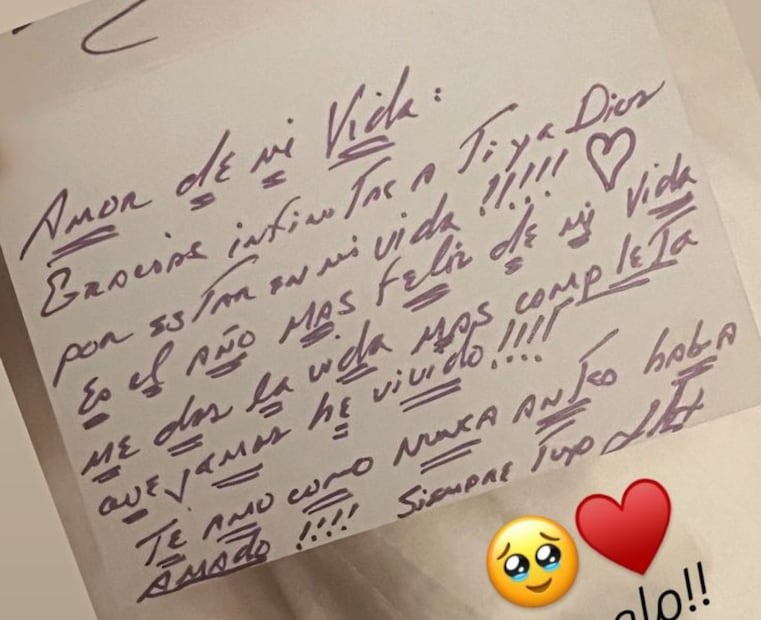 Amor de mi Vida:
Gracias infinitas a Ti y a Dios
por estar en mi vida !!!!! ♡
Es el año mas feliz de mi vida
me das la vida mas completa
que jamas he vivido !!!!
Te amo como nunca antes había
amado !!!! Siempre tuyo
🥹❤️